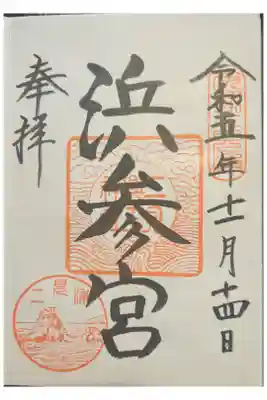 令和五年十二月十四日
浜参宮
奉拝
二見浦